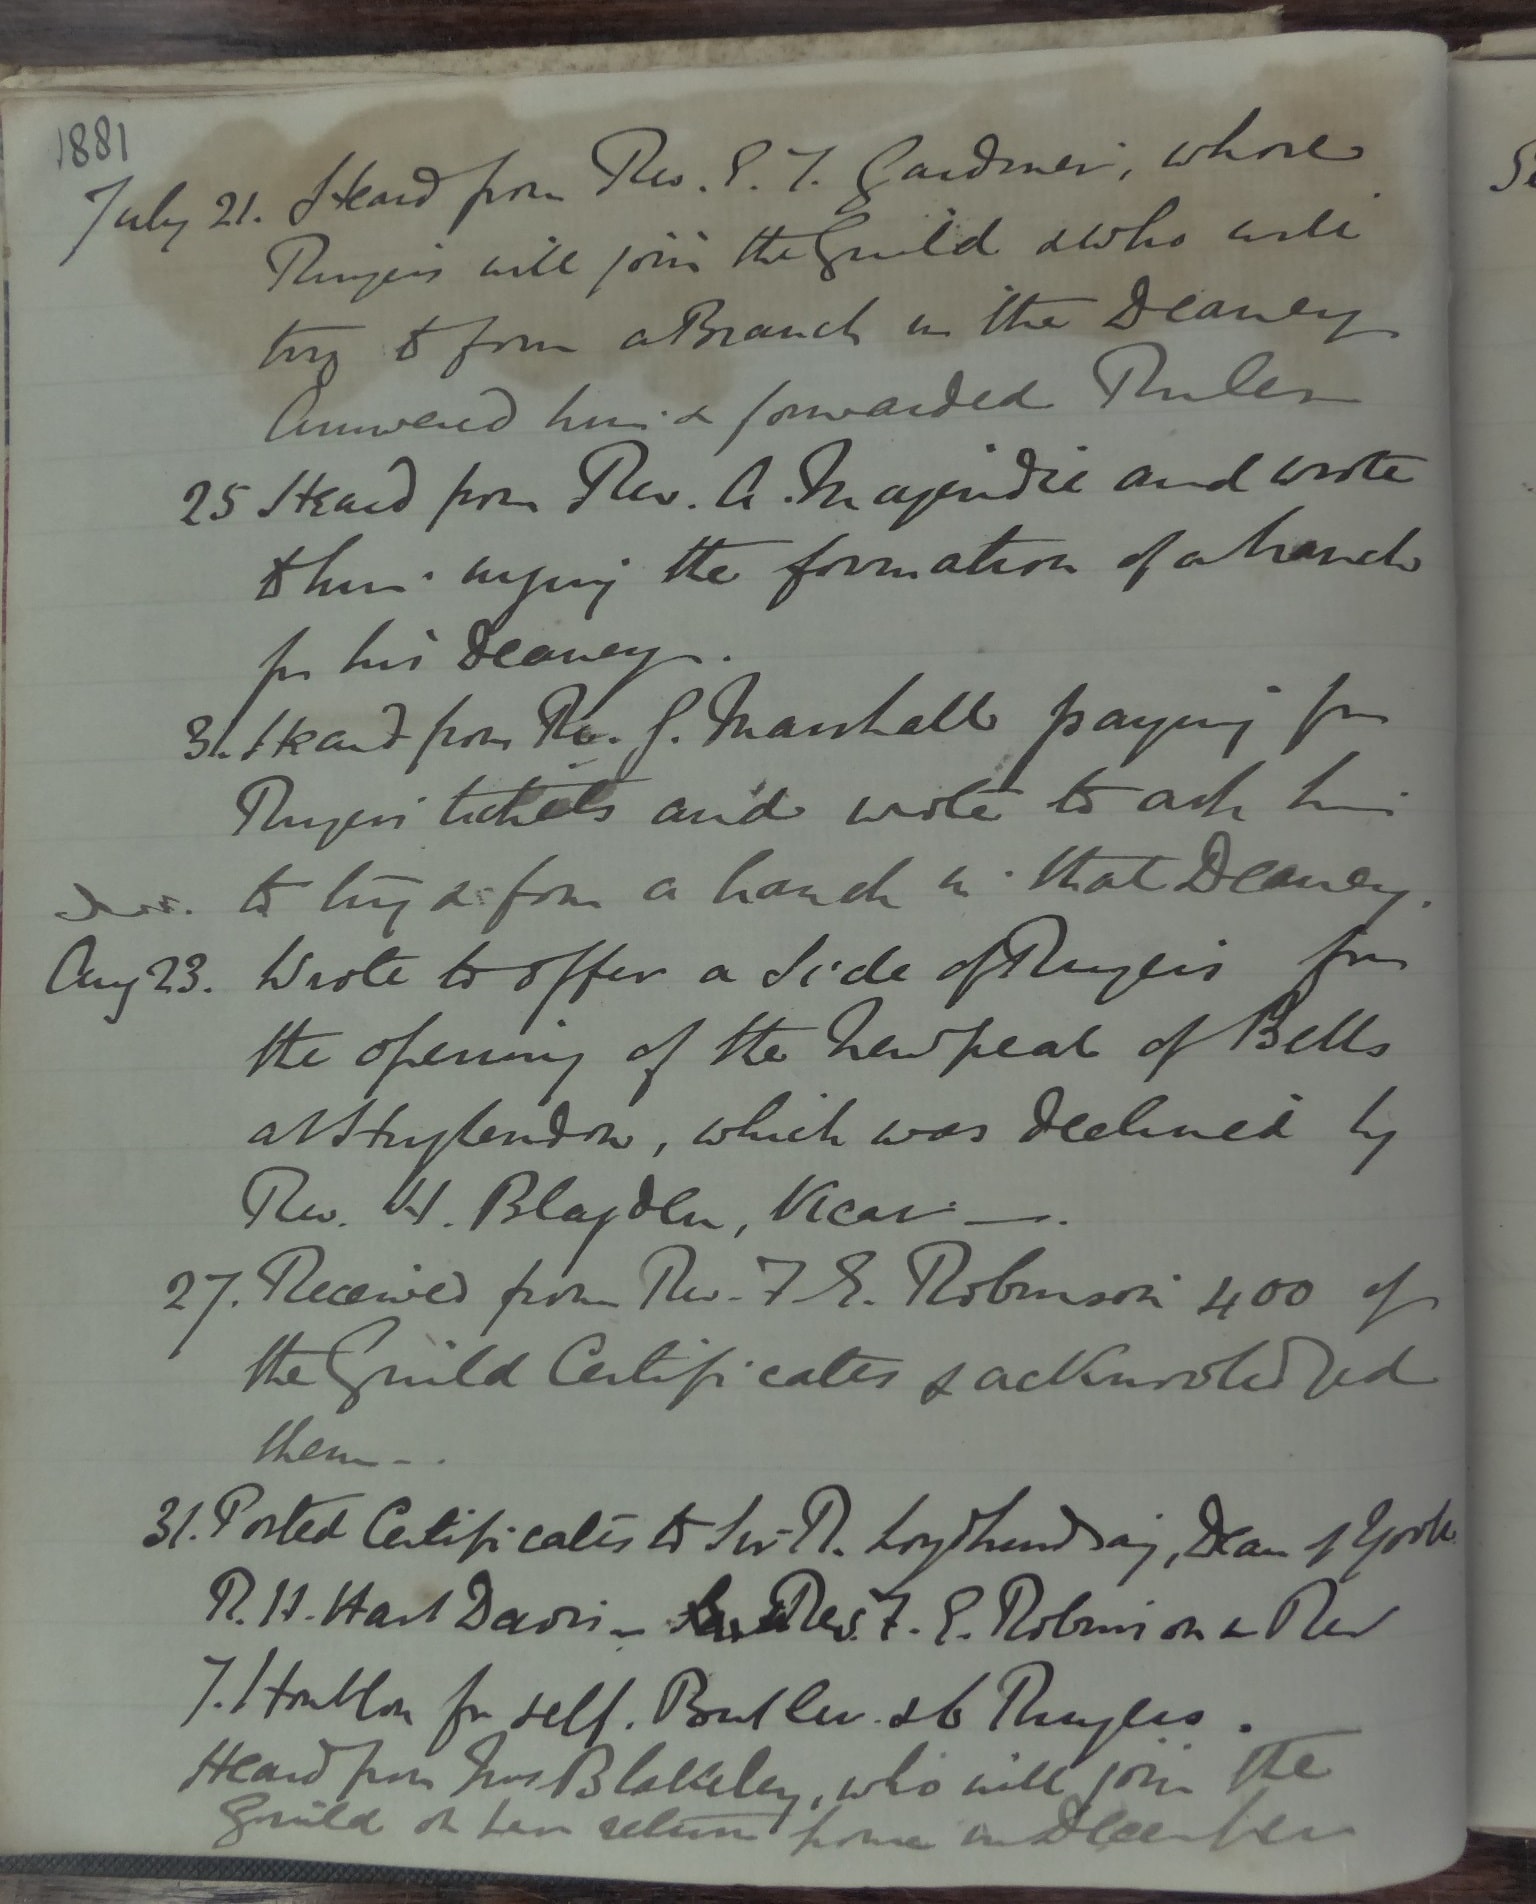 1881
July 21. Heard from Rev. E. T. Gardiner, whose
Ringers will join the Guild & who will
try to form a Branch in the Deanery
Answered him & forwarded Rules
25 Heard from Rev. A. Majendie and wrote
to him urging the formation of a branch
for his Deanery.
31. Heard from Rev. G. Marshall paying for
Ringers tickets and wrote to ask him
to try & form a branch in that Deanery.
Aug 23. Wrote to offer a side of Ringers for
the opening of the New peal of Bells
at Hughenden, which was declined by
Rev. H. Blagden, Vicar —.
27. Received from Rev. F. E. Robinson 400 of
the Guild Certificates & acknowledged
them - .
31. Posted Certificates to Sir R. Loyd Lindsay, Dean of York
R. H. Hart Davis - Rev. F. E. Robinson & Rev
T. Houblon for self. Butler & 6 Ringers.
Heard from Mrs Blakeley, who will join the
Guild on her return home in December